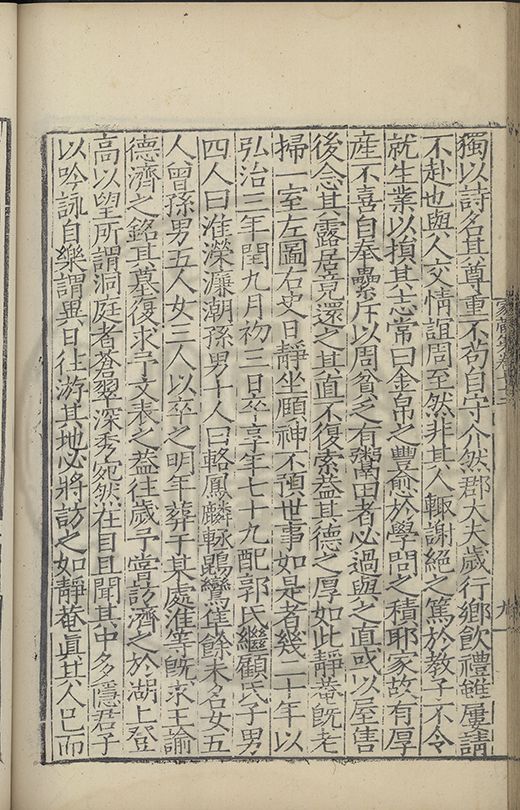 獨以詩名其尊重不苟自守介然郡大夫歲行鄉飲禮雖屢請
不赴也與人交情誼周至然非其人輙謝絕之篤於教子不令
就生業以損其志常曰金帛之豐愈於學問之積耶家故有厚
產不喜自奉纍斥以周貧乏有鬻田者必過與之直或以屋售
後念其露居竟還之其直不復索蓋其德之厚如此靜菴旣老
掃一室左圖右史日靜坐頤神不預世事如是者幾二十年以
弘治三年閏九月初三日卒享年七十九配郭氏繼顧氏子男
四人曰淮濚濂潮孫男十人曰輅鳳麟輅鵾鸞隼餘未名女五
人曾孫男五人女三人以卒之明年葬于某處淮等旣求王諭
德濟之銘其墓復求予文表之蓋往歲予嘗訪濟之於湖上登
高以望所謂洞庭者蒼翠深秀宛然在目且聞其中多隱君子
以吟詠自樂謂異日往游其地必將訪之如靜菴眞其人已而
家藏集卷七十三
九